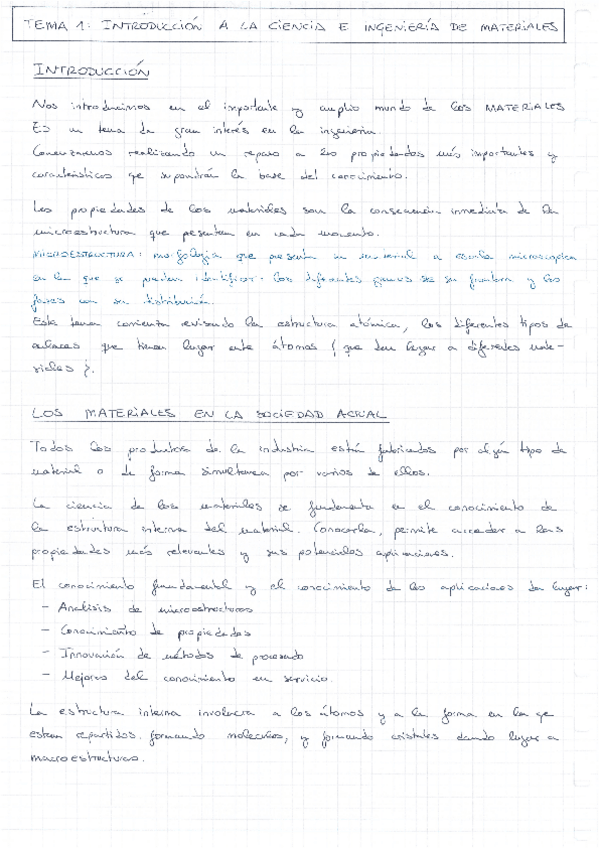 TEMA 1: INTRODUCCIÓN A LA CIENCIA E INGENIERÍA DE MATERIALES
INTRODUCCIÓN
Nos introducimos en el importante y amplio mundo de los MATERIALES
Es un tema de gran interés en la ingeniería.
Comenzaremos realizando un repaso a las propiedades más importantes y
características que supondrán la base del conocimiento.
Las propiedades de los materiales son la consecuencia inmediata de la
microestructura que presentan en cada momento.
MICROESTRUCTURA: morfología que presenta un material a escala microscópica
en la que se pueden identificar los diferentes granos que se y las
fases con su distribución.
Este tema comienza revisando la estructura atómica, los diferentes tipos de
enlaces que tienen lugar entre átomos (que dan lugar a diferentes mate-
riales).
LOS MATERIALES EN LA SOCIEDAD ACTUAL
Todos los productos de la industria están fabricados por algún tipo de
material o de forma simultanea por varios de ellos.
La ciencia de los materiales se fundamenta en el conocimiento de
la estructura interna del material. Conocerla, permite acceder a las
propiedades más relevantes y sus potenciales aplicaciones.
El conocimiento fundamental y el conocimiento de las aplicaciones dan lugar:
- Analisis de microestructuras
- Conocimiento de propiedades
- Innovación de métodos de procesado
- Mejoras del conocimiento en servicio.
La estructura interna involucra a los átomos y a la forma en la qe
estan repartidos formando moleculas, y formando cristales dando lugar a
macroestructuras.